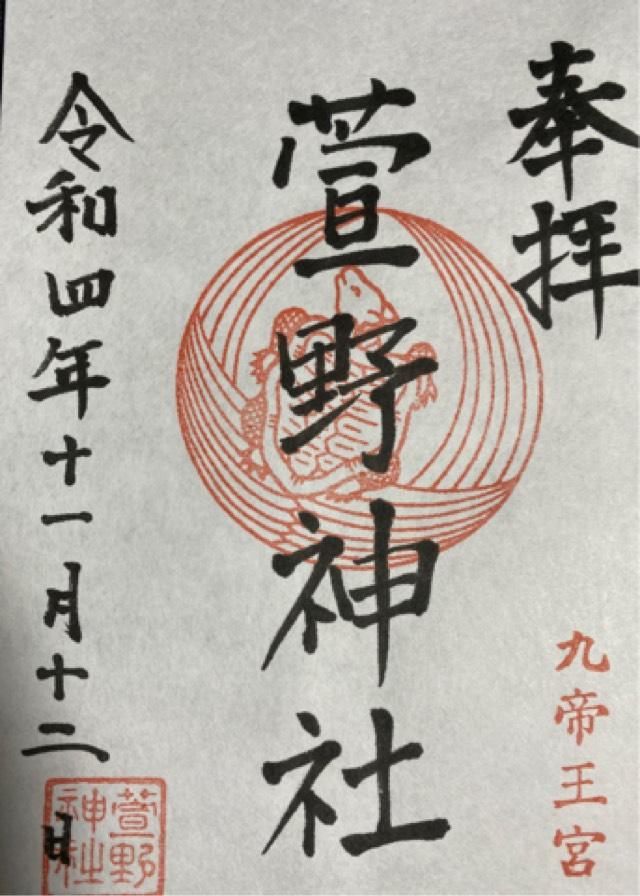 奉拝
九帝王宮
萱野神社
令和四年十一月十二日
萱野
神社